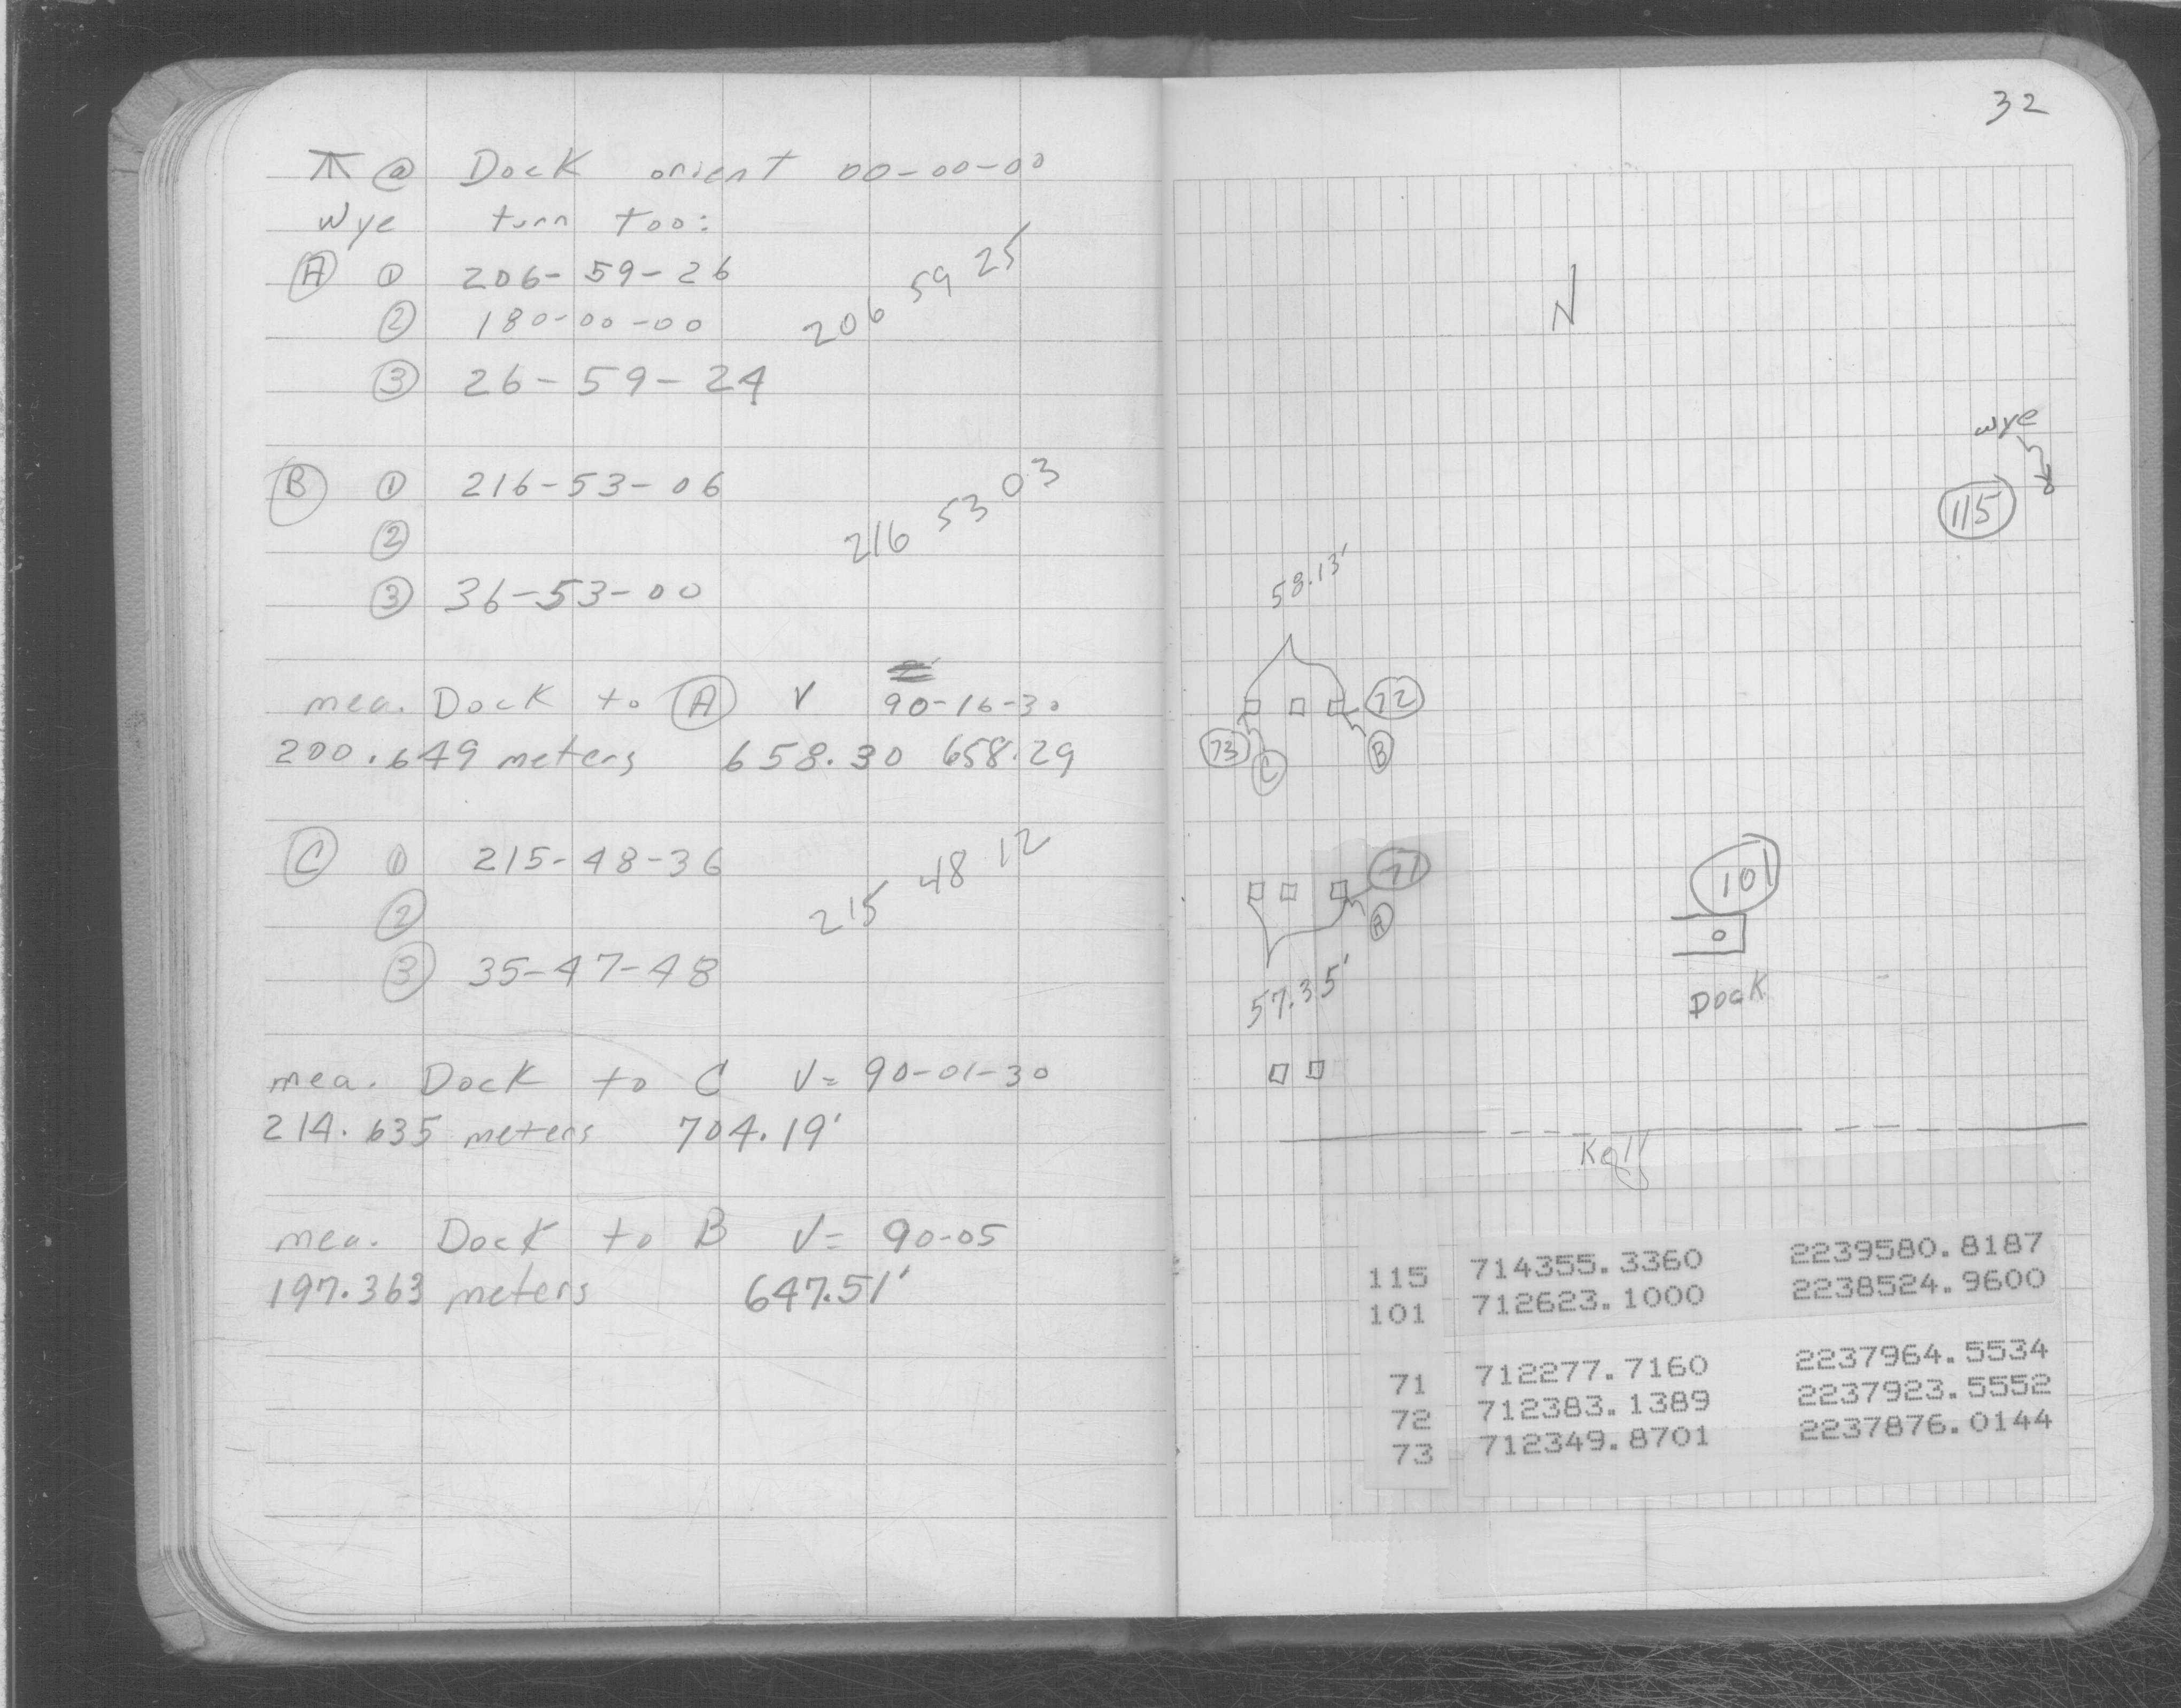 ⊼ @ Dock orient 00-00-00
Wye turn too:
Ⓐ ① 206-59-26
② 180-00-00 206 59 25
③ 26-59-24
Ⓑ ① 216-53-06
② 216 53 03
③ 36-53-00
mea. Dock to Ⓐ V 90-16-30
200.649 meters 658.30 658.29
Ⓒ ① 215-48-36
② 215 48 12
③ 35-47-48
mea. Dock to C V= 90-01-30
214.635 meters 704.19'
mea. Dock to B V= 90-05
197.363 meters 647.51'
32
N
wye
115
58.13'
72
73 C B
71
101
A
57.35'
Dock
115 714355.3360 2239580.8187
101 712623.1000 2238524.9600
71 712277.7160 2237964.5534
72 712383.1389 2237923.5552
73 712349.8701 2237876.0144